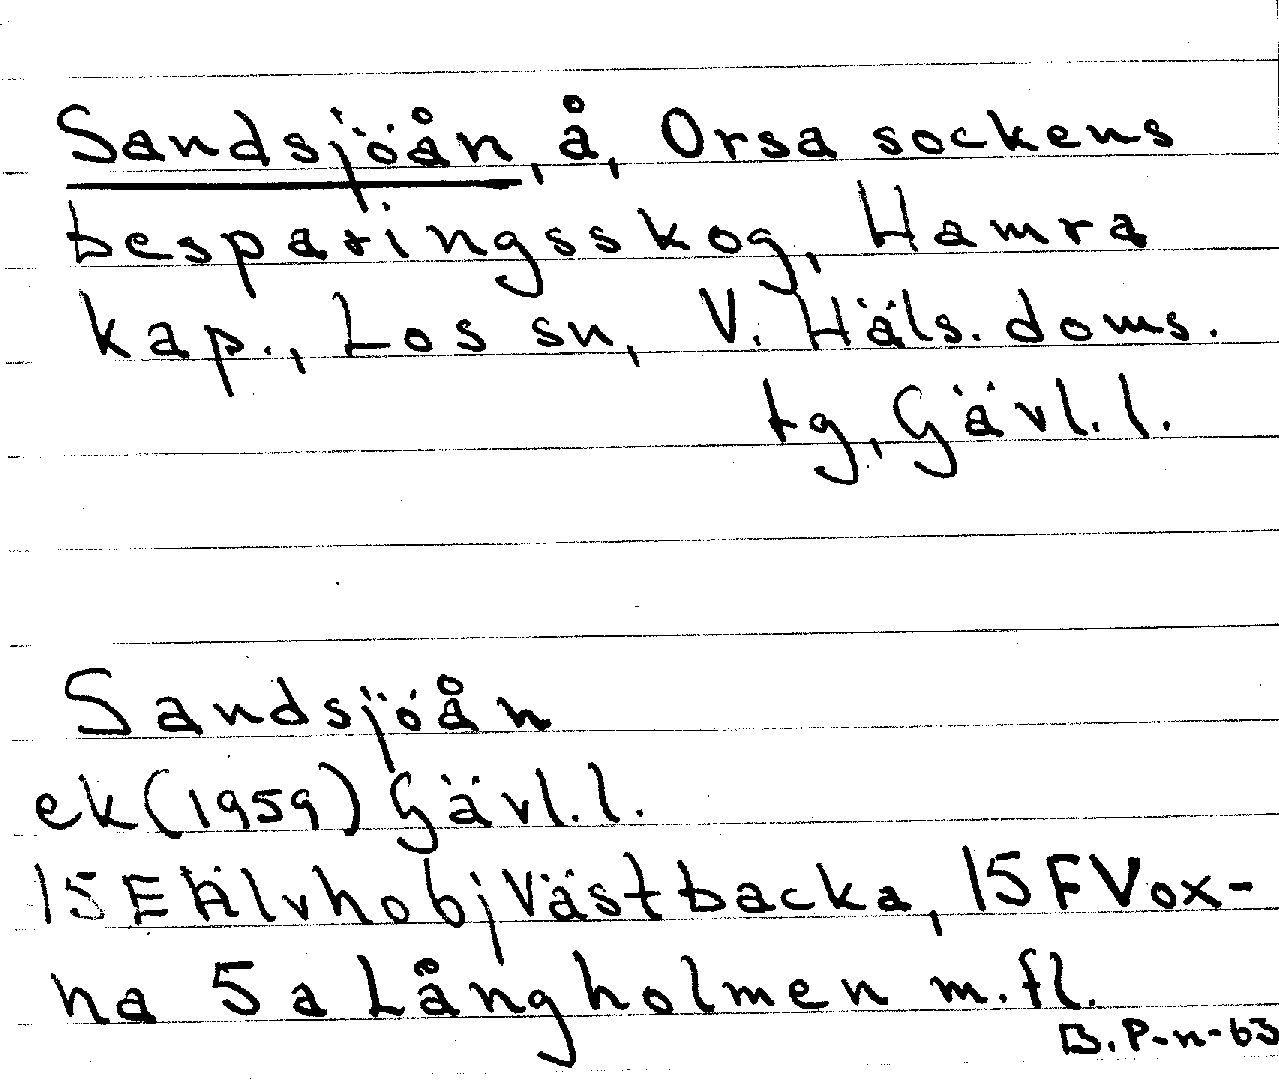 Sandsjöån, å, Orsa sockens
besparingsskog, Hamra
kap., Los sn, V. Häls. doms.
tg, Gävl. l.
Sandsjöån
ek (1959) Gävl. l.
15E Älvho bj Västbacka, 15F Vox-
na 5a Långholmen m. fl.
B. P-n-63